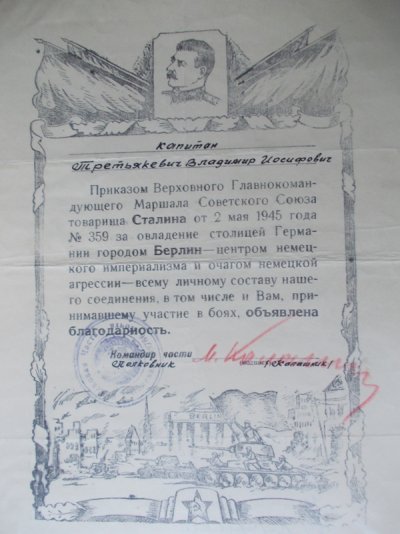 капитан
Третьякевич Владимир Иосифович
Приказом Верховного Главнокоман-
дующего Маршала Советского Союза
товарища Сталина от 2 мая 1945 года
№ 359 за овладение столицей Герма-
нии городом Берлин—центром немец-
кого империализма и очагом немецкой
агрессии—всему личному составу наше-
го соединения, в том числе и Вам, при-
нимавшему участие в боях, объявлена
благодарность.
Командир части
Полковник
BERLIN